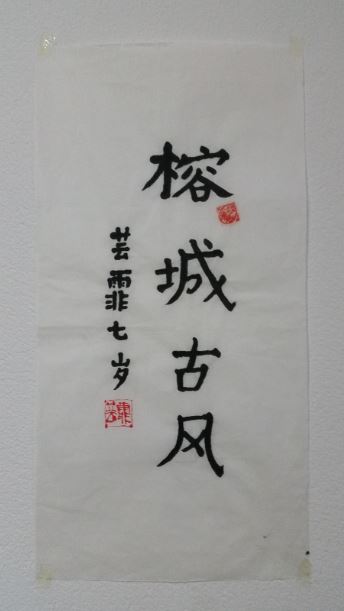 榕城古风
芸霏七岁